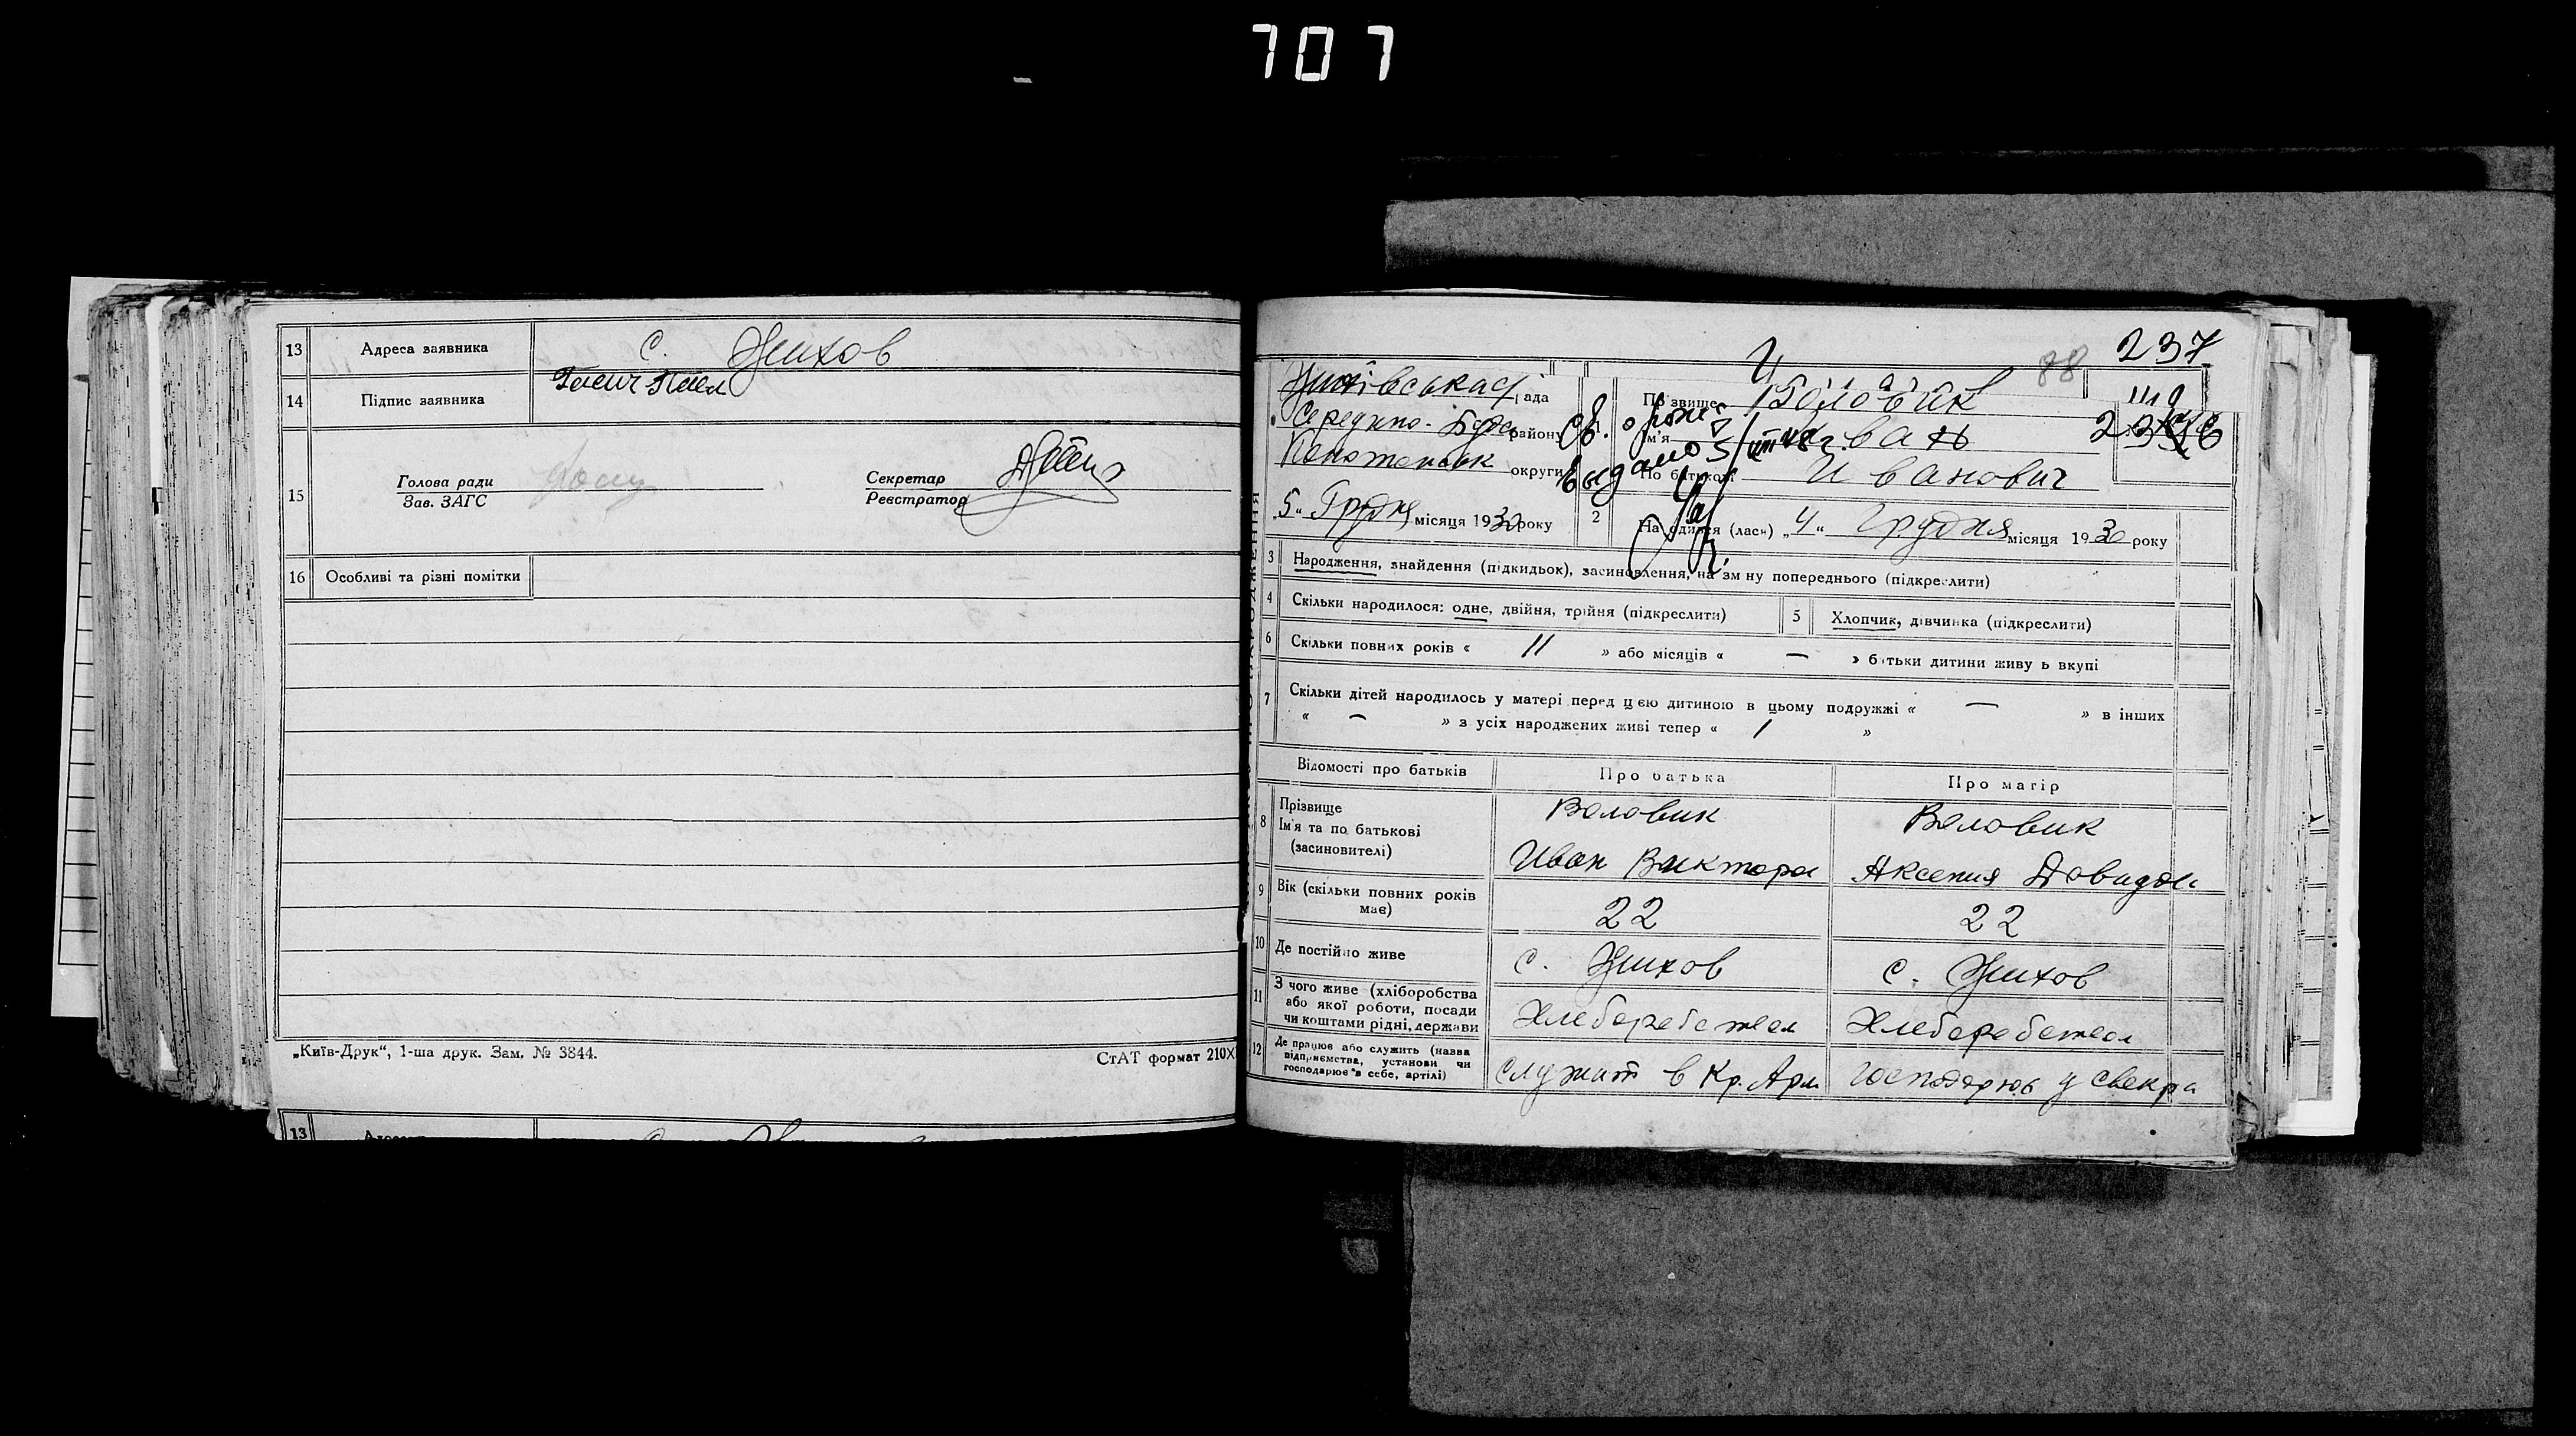 707
13 Адреса заявника с. Жихов
14 Підпис заявника
15 Голова ради
Зав. ЗАГС
Секретар
Реєстратор
16 Особливі та різні помітки
„Київ-Друк“, 1-ша друк. Зам. № 3844.
СтАТ формат 210Х
13
237
88
Жихівська рада
Середино-Буда району
Конотопськ округи
„5“ Грудня місяця 1930 року
Св. о рожд.
выдано 5/VIII
1 Прізвище Воловик
Ім'я Иван
По батькові Иванович
2 Народився (лась) „4“ Грудня місяця 1930 року
3 Народження, знайдення (підкидьок), засиновлення, на зміну попереднього (підкреслити)
4 Скільки народилося: одне, двійня, трійня (підкреслити)
5 Хлопчик, дівчинка (підкреслити)
6 Скільки повних років « 11 » або місяців « — » батьки дитини живуть вкупі
7 Скільки дітей народилось у матері перед цією дитиною в цьому подружжі « — » в інших
« — » з усіх народжених живі тепер « 1 »
Відомості про батьків Про батька Про матір
8 Прізвище Воловик Воловик
Ім'я та по батькові
(засиновителі) Иван Виктора Аксения Давидов
9 Вік (скільки повних років
має) 22 22
10 Де постійно живе с. Жихов с. Жихов
11 З чого живе (хліборобства
або якої роботи, посади
чи коштами рідні, держави Хлеборобством Хлеборобством
12 Де працює або служить (назва
підприємства, установи чи
господарює в себе, артілі) служит в Кр. Арм. господарює у свекра